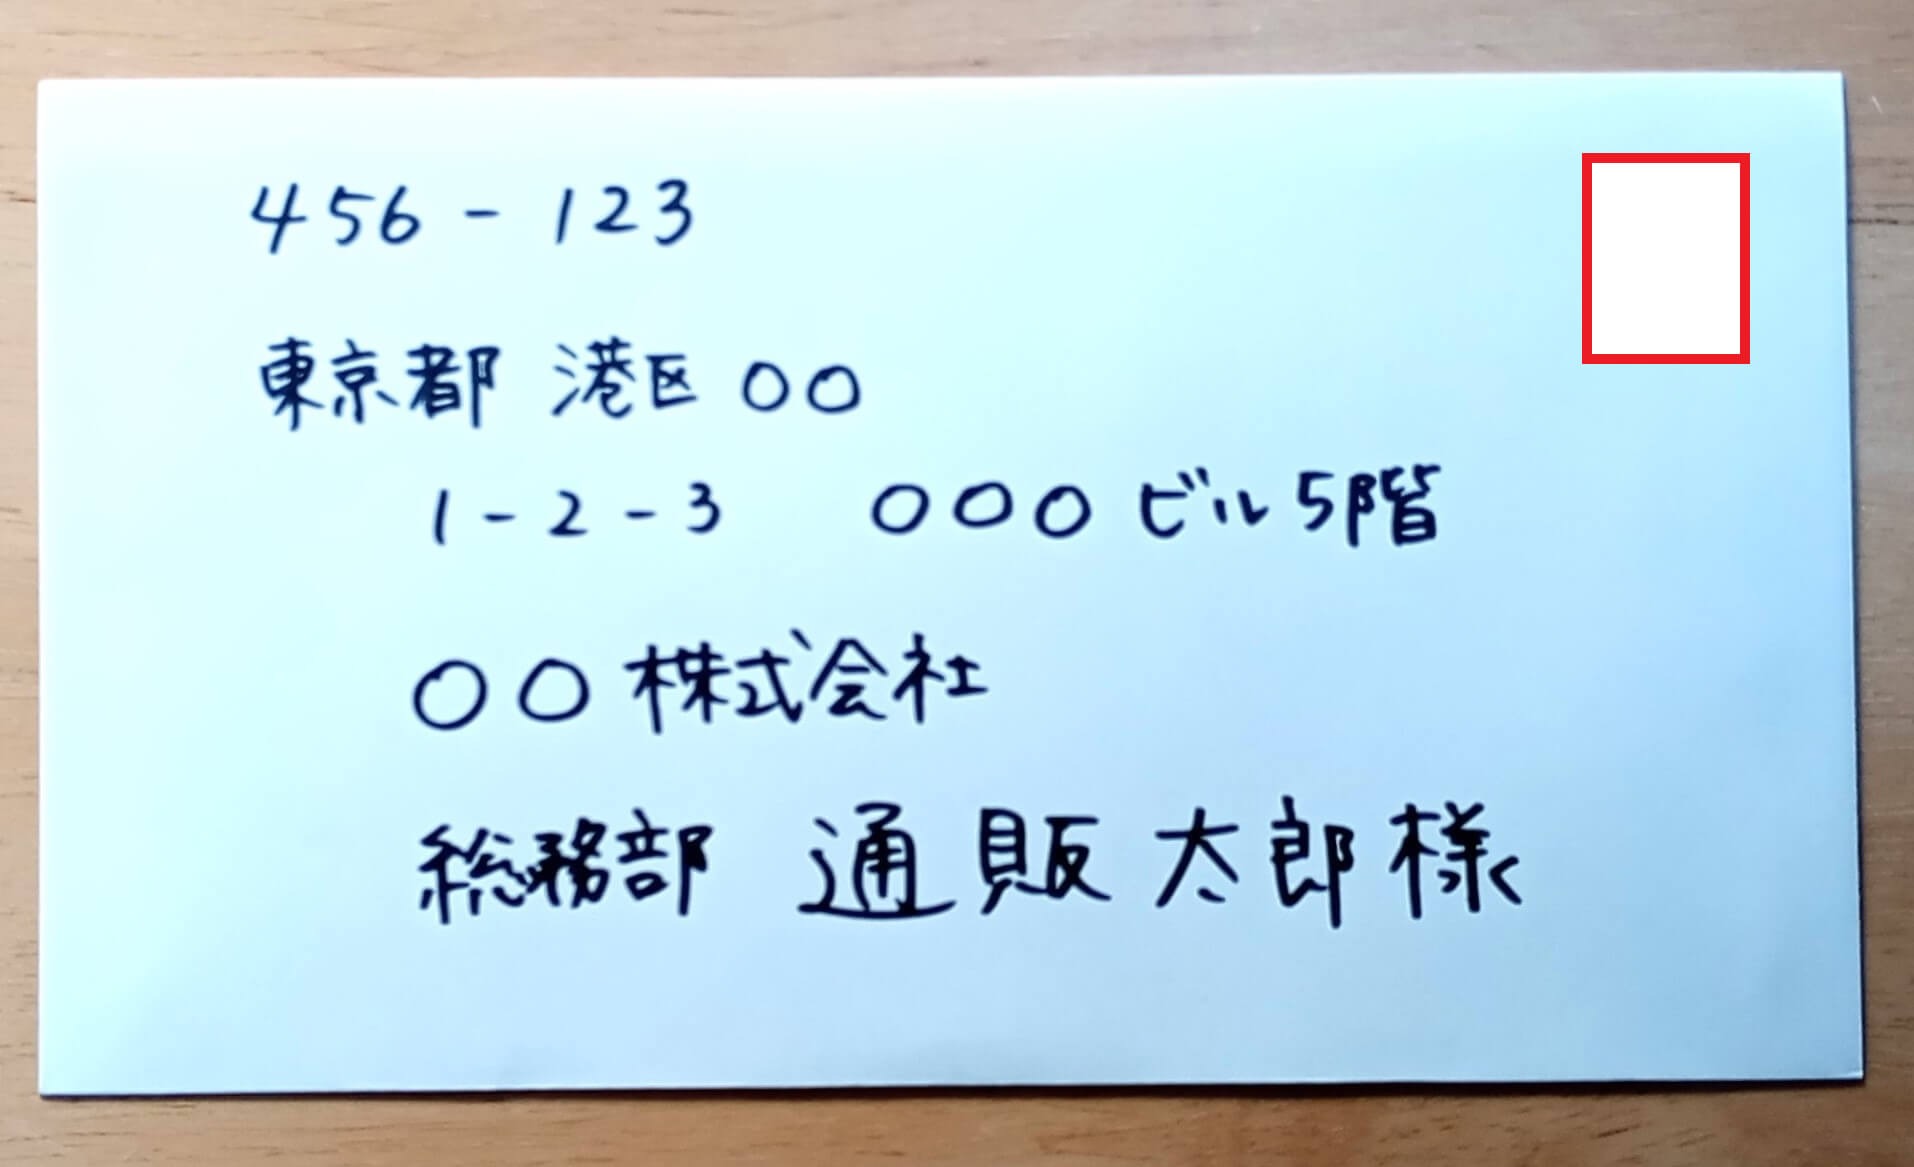 456-123
東京都 港区 〇〇
1-2-3 〇〇〇ビル5階
〇〇株式会社
総務部 通販太郎様